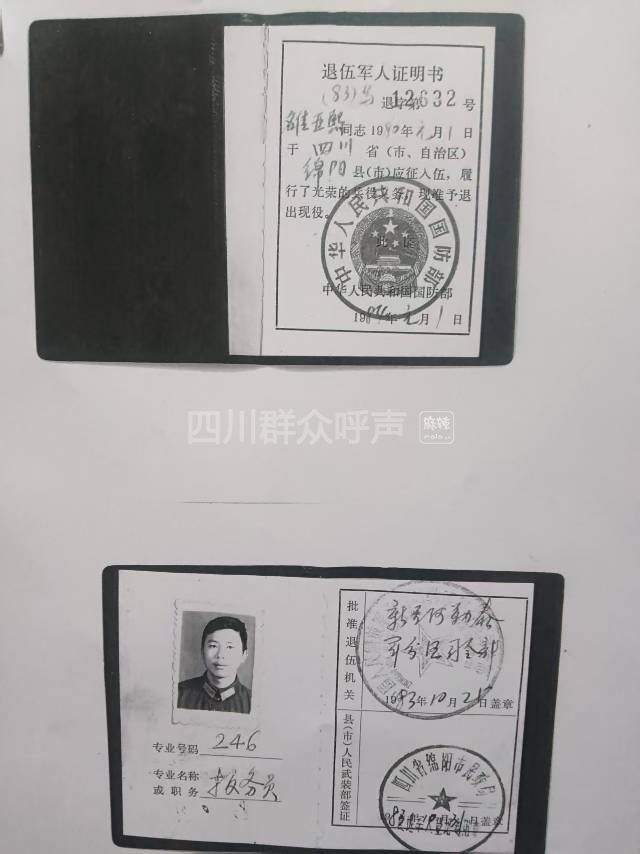 退伍军人证明书
(83) 退字第12632号
同志1980年元月1日
于四川省(市、自治区)
绵阳县(市)应征入伍,履
行了光荣的兵役义务,现准予退
出现役。
此证
中华人民共和国国防部
中华人民共和国国防部
198 年元月1日
四川群众呼声 麻辣
mala.cn
批准退伍机关
新疆阿勒泰
军分区司令部
1983年10月25日盖章
专业号码 246
专业名称
或职务 报务员
县(市)人民武装部签证
四川省绵阳市
日盖章